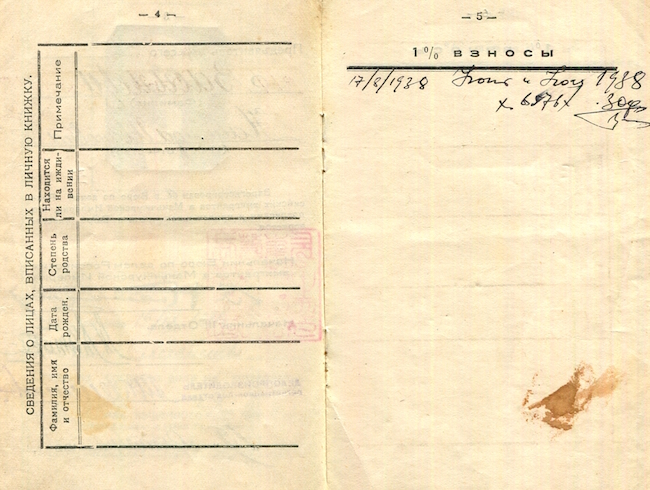 — 4 —
СВЕДЕНИЯ О ЛИЦАХ, ВПИСАННЫХ В ЛИЧНУЮ КНИЖКУ.
Фамилия, имя
и отчество
Дата
рожден.
Степень
родства
Находится
ли на ижди-
вении
Примечание
— 5 —
1% ВЗНОСЫ
17/8/1938 1938